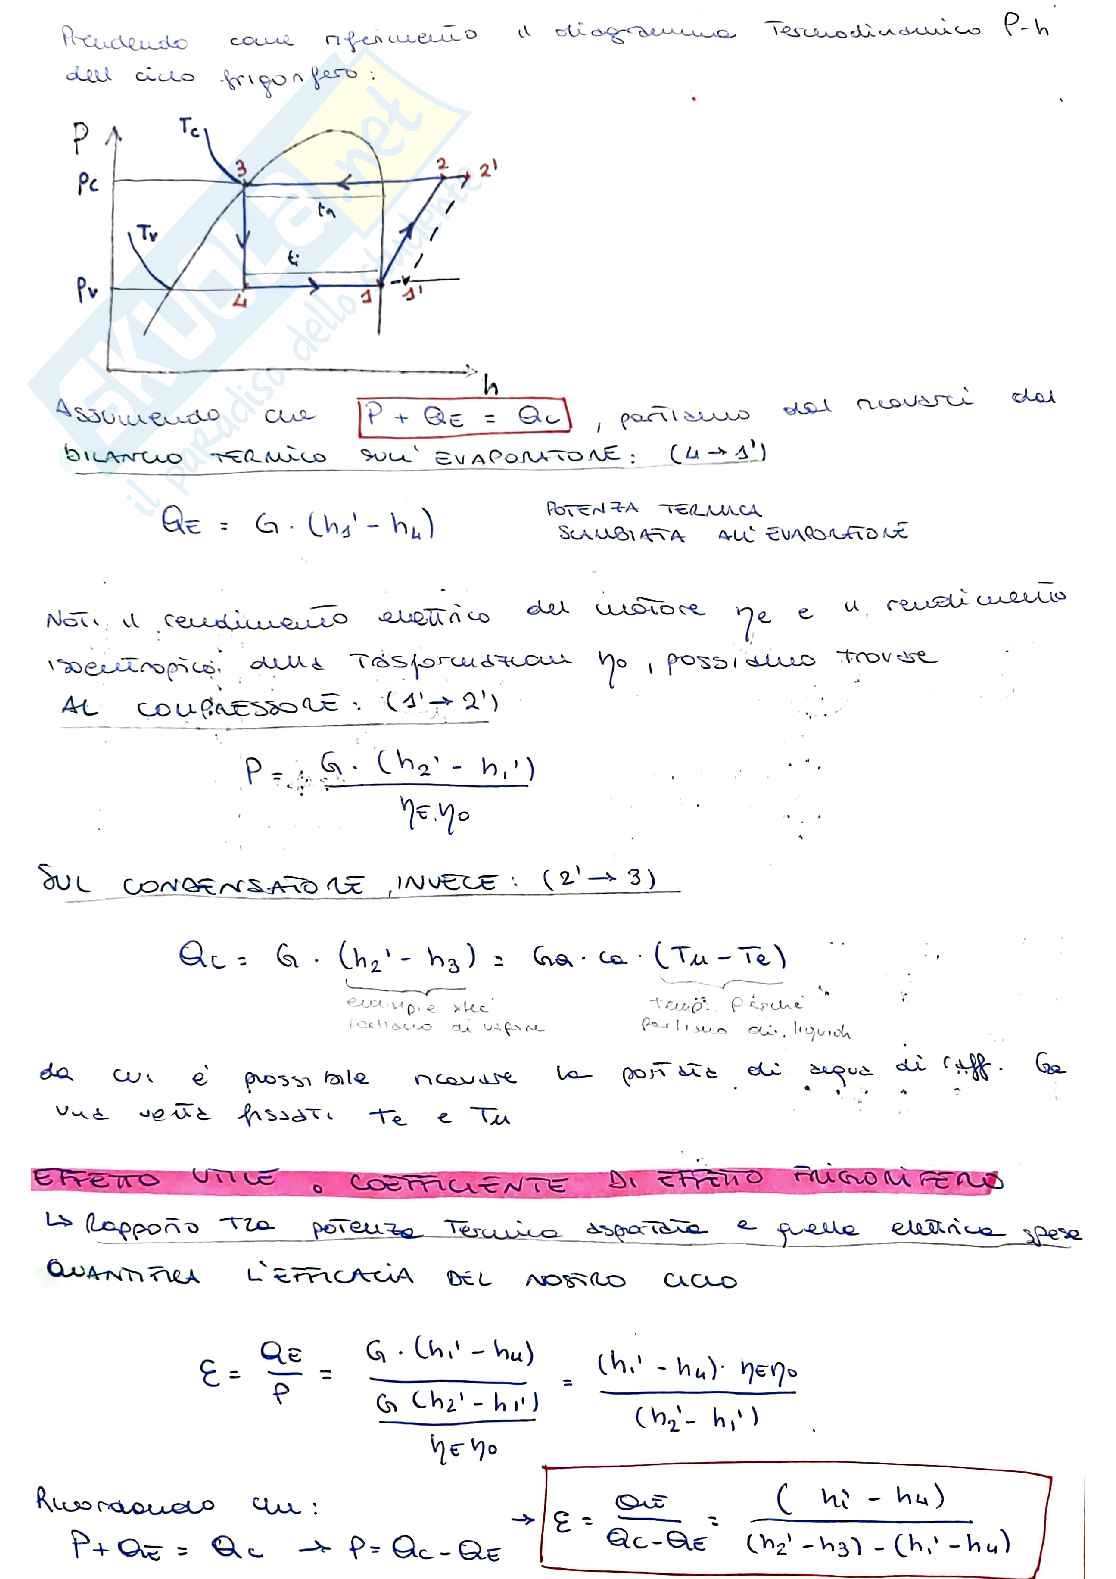 Prendendo come riferimento il diagramma Termodinamico P-h
dell ciclo frigorifero:
P
Tc
3
2
2'
Pc
tn
Tv
ti
Pv
4
1
1'
h
Assumendo che P + QE = Qc , partiamo dal ricavarci dal
BILANCIO TERMICO SULL'EVAPORATORE: (4→1')
QE = G · (h1' - h4)
POTENZA TERMICA
SCAMBIATA ALL'EVAPORATORE
Noti il rendimento elettrico del motore ηe e il rendimento
isoentropico della Trasformazion ηo, possiamo trovare
AL COMPRESSORE: (1'→2')
P = G · (h2' - h1')
ηE·ηo
SUL CONDENSATORE, INVECE: (2'→3)
Qc = G · (h2' - h3) = Ga · ca · (Tu - Te)
parliamo di vapore
temp. perché
parliamo di liquidi
da cui è possibile ricavare la portata di acqua di raff. Ga
una volta fissati Te e Tu
EFFETTO UTILE o COEFFICIENTE DI EFFETTO FRIGORIFERO
↳ Rapporto tra potenza Termica asportata e quella elettrica spesa
QUANTIFICA L'EFFICACIA DEL NOSTRO CICLO
ε = QE / P = G · (h1' - h4) / G (h2' - h1') / ηE ηo = (h1' - h4) · ηE ηo / (h2' - h1')
Ricordando che:
P + QE = Qc → P = Qc - QE
→ ε = QE / Qc - QE = (h1' - h4) / (h2' - h3) - (h1' - h4)
SKUOLA.net
il paradiso dello studente